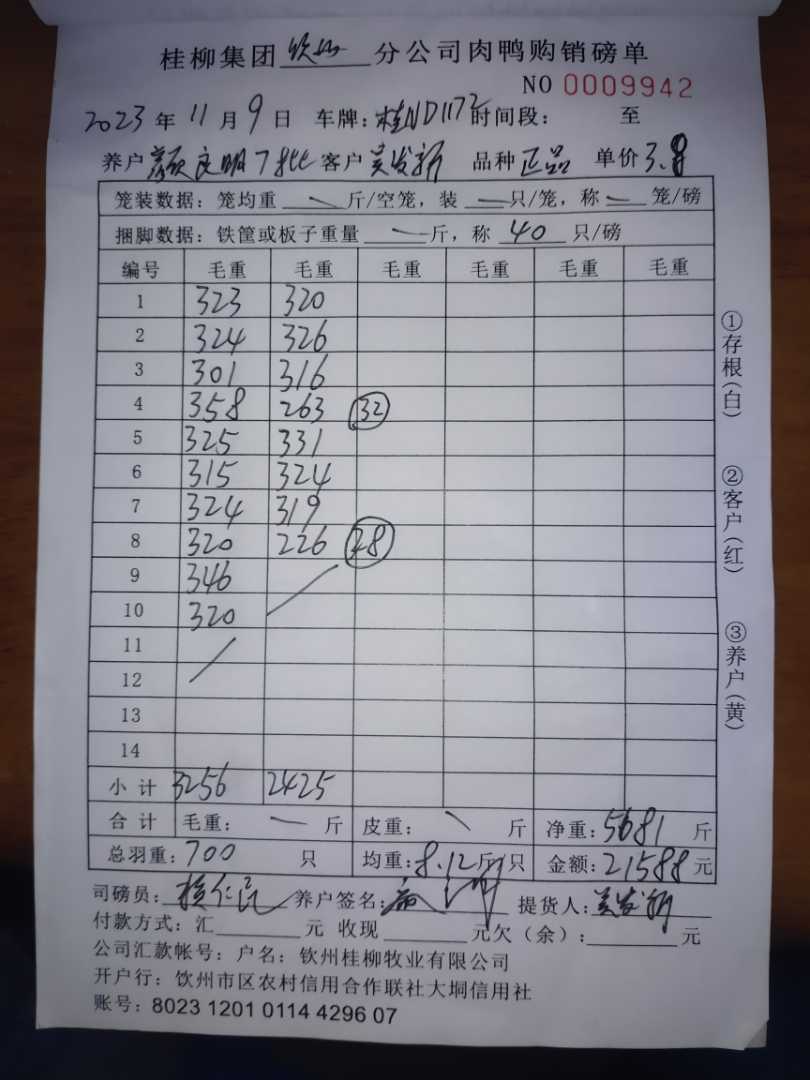 桂柳集团钦州分公司肉鸭购销磅单
NO 0009942
2023年11月9日 车牌:桂ND1172 时间段: 至
养户 颜良明7批 客户 吴发新 品种 正品 单价 3.8
笼装数据:笼均重 — 斤/空笼,装 — 只/笼,称 — 笼/磅
捆脚数据:铁筐或板子重量 — 斤,称 40 只/磅
编号 毛重 毛重 毛重 毛重 毛重 毛重
1 323 320
2 324 326
3 301 316
4 358 263 32
5 325 331
6 315 324
7 324 319
8 320 226 28
9 346
10 320
11
12
13
14
小计 3256 2425
合计 毛重: — 斤 皮重: 斤 净重:5681 斤
总羽重:700 只 均重:8.12斤/只 金额:21588元
司磅员: 养户签名: 提货人:吴发新
付款方式:汇 元 收现 元欠(余): 元
公司汇款帐号:户名:钦州桂柳牧业有限公司
开户行:饮州市区农村信用合作联社大垌信用社
账号:8023 1201 0114 4296 07
①存根(白)
②客户(红)
③养户(黄)